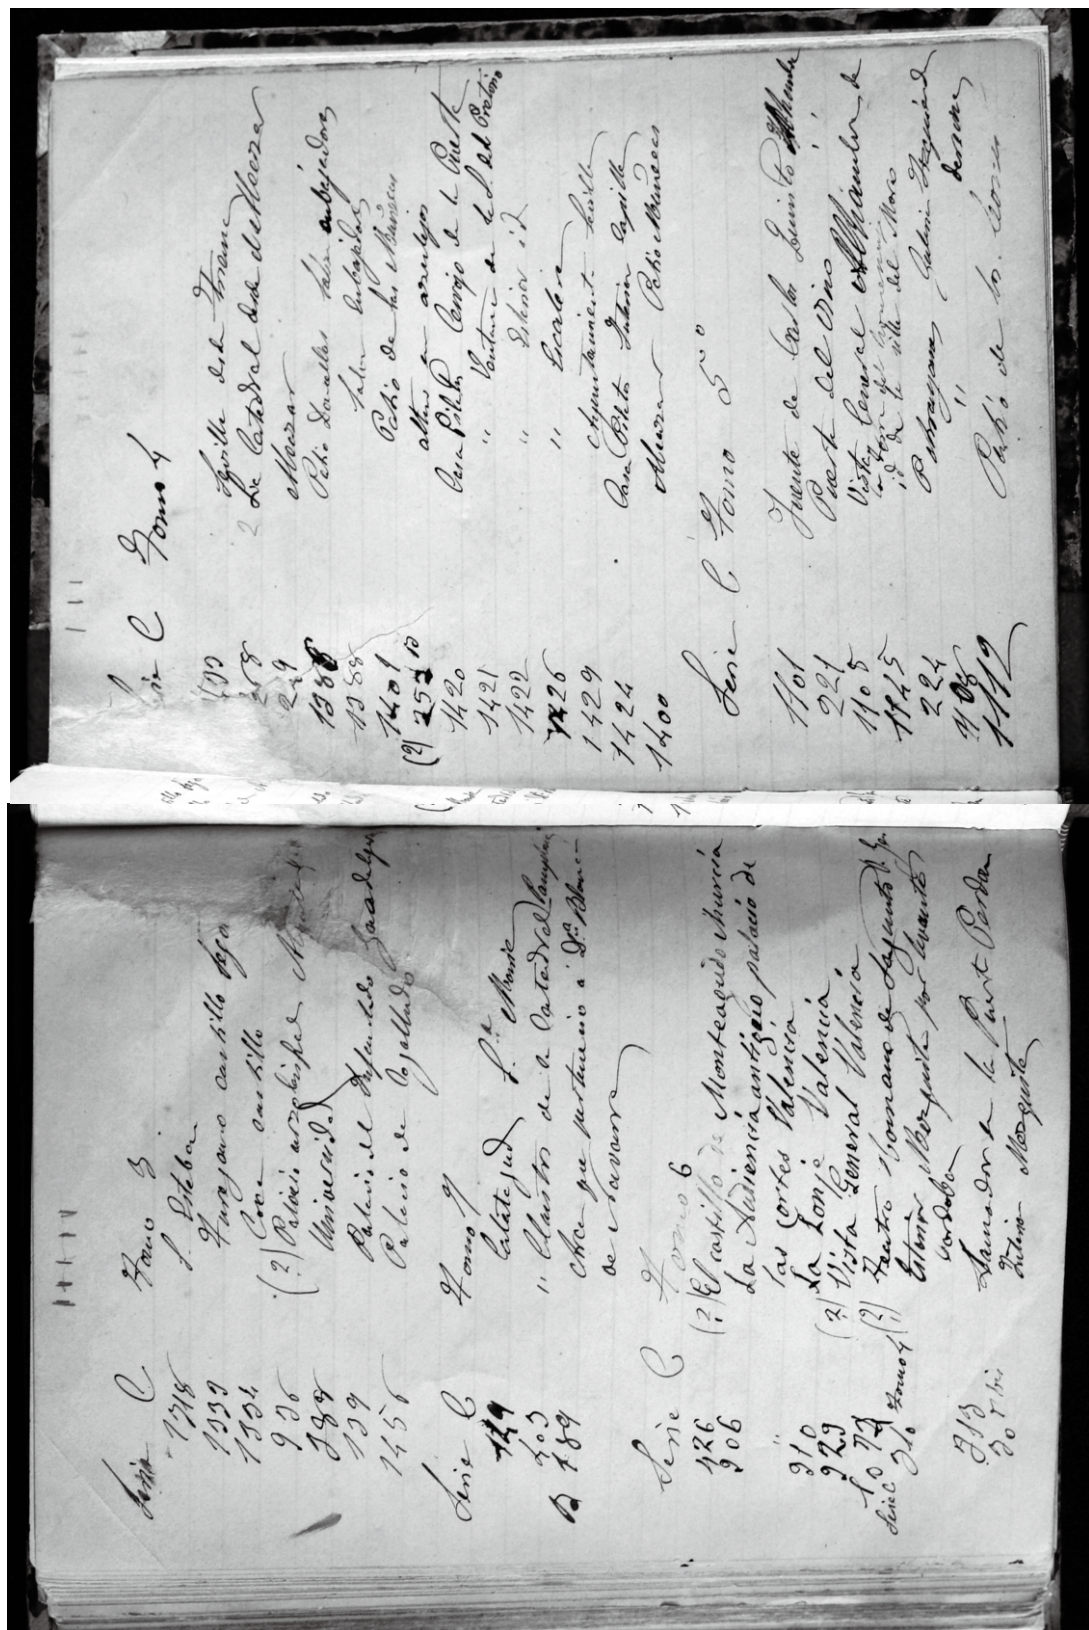 Serie C Tomo 3
1718 S. Esteban
1333 Turegano castillo
1334 Coca castillo
936 (?) Palacio arzobispal
388 Universidad
139 Palacio del Infantado Guadalajara
1456 Palacio de Cogolludo
Serie C Tomo 7
149 Calatayud S.ta Maria
203 " Claustro de la Catedral Pamplona
B 189 Arca que perteneció a Dª Blanca
de Navarra
Serie C Tomo 6
426 (?) El castillo de Monteagudo Murcia
906 La Audiencia antiguo palacio de
las Cortes Valencia
910 La Lonja Valencia
929 (?) Vista General Valencia
(?) Teatro Romano de Sagunto
Serie C Tomo 4
310 Exterior Mezquita por Levante
Cordoba
313
30 bis Interior Mezquita
Serie C Tomo 4
Sevilla desde Triana
2 La Catedral desde el Alcazar
229 Alcazar
1386 Patio Doncellas salon embajadores
1388 Salon Embajadores
1401 Patio de las Muñecas
(?) 253 altar en azulejos
1420 Casa Pilatos Cerrojo de la Puerta
1421 " Ventana de la S. del Pretorio
1422 " Exterior id
1426 " Escalera
1429 Ayuntamiento Sevilla
1424 Casa Pilatos Interior Capilla
1400 Alcazar Patio Muñecas
Serie C Tomo 5º
1101 Fuente de Carlos Quinto Alhambra
221 Puerta del Vino " "
1105 Vista General Alhambra de
la torre del homenaje
1145 id de la silla del Moro
224 Patio Arrayanes Galeria Izquierda
1108 " " derecha
1112 Patio de los leones